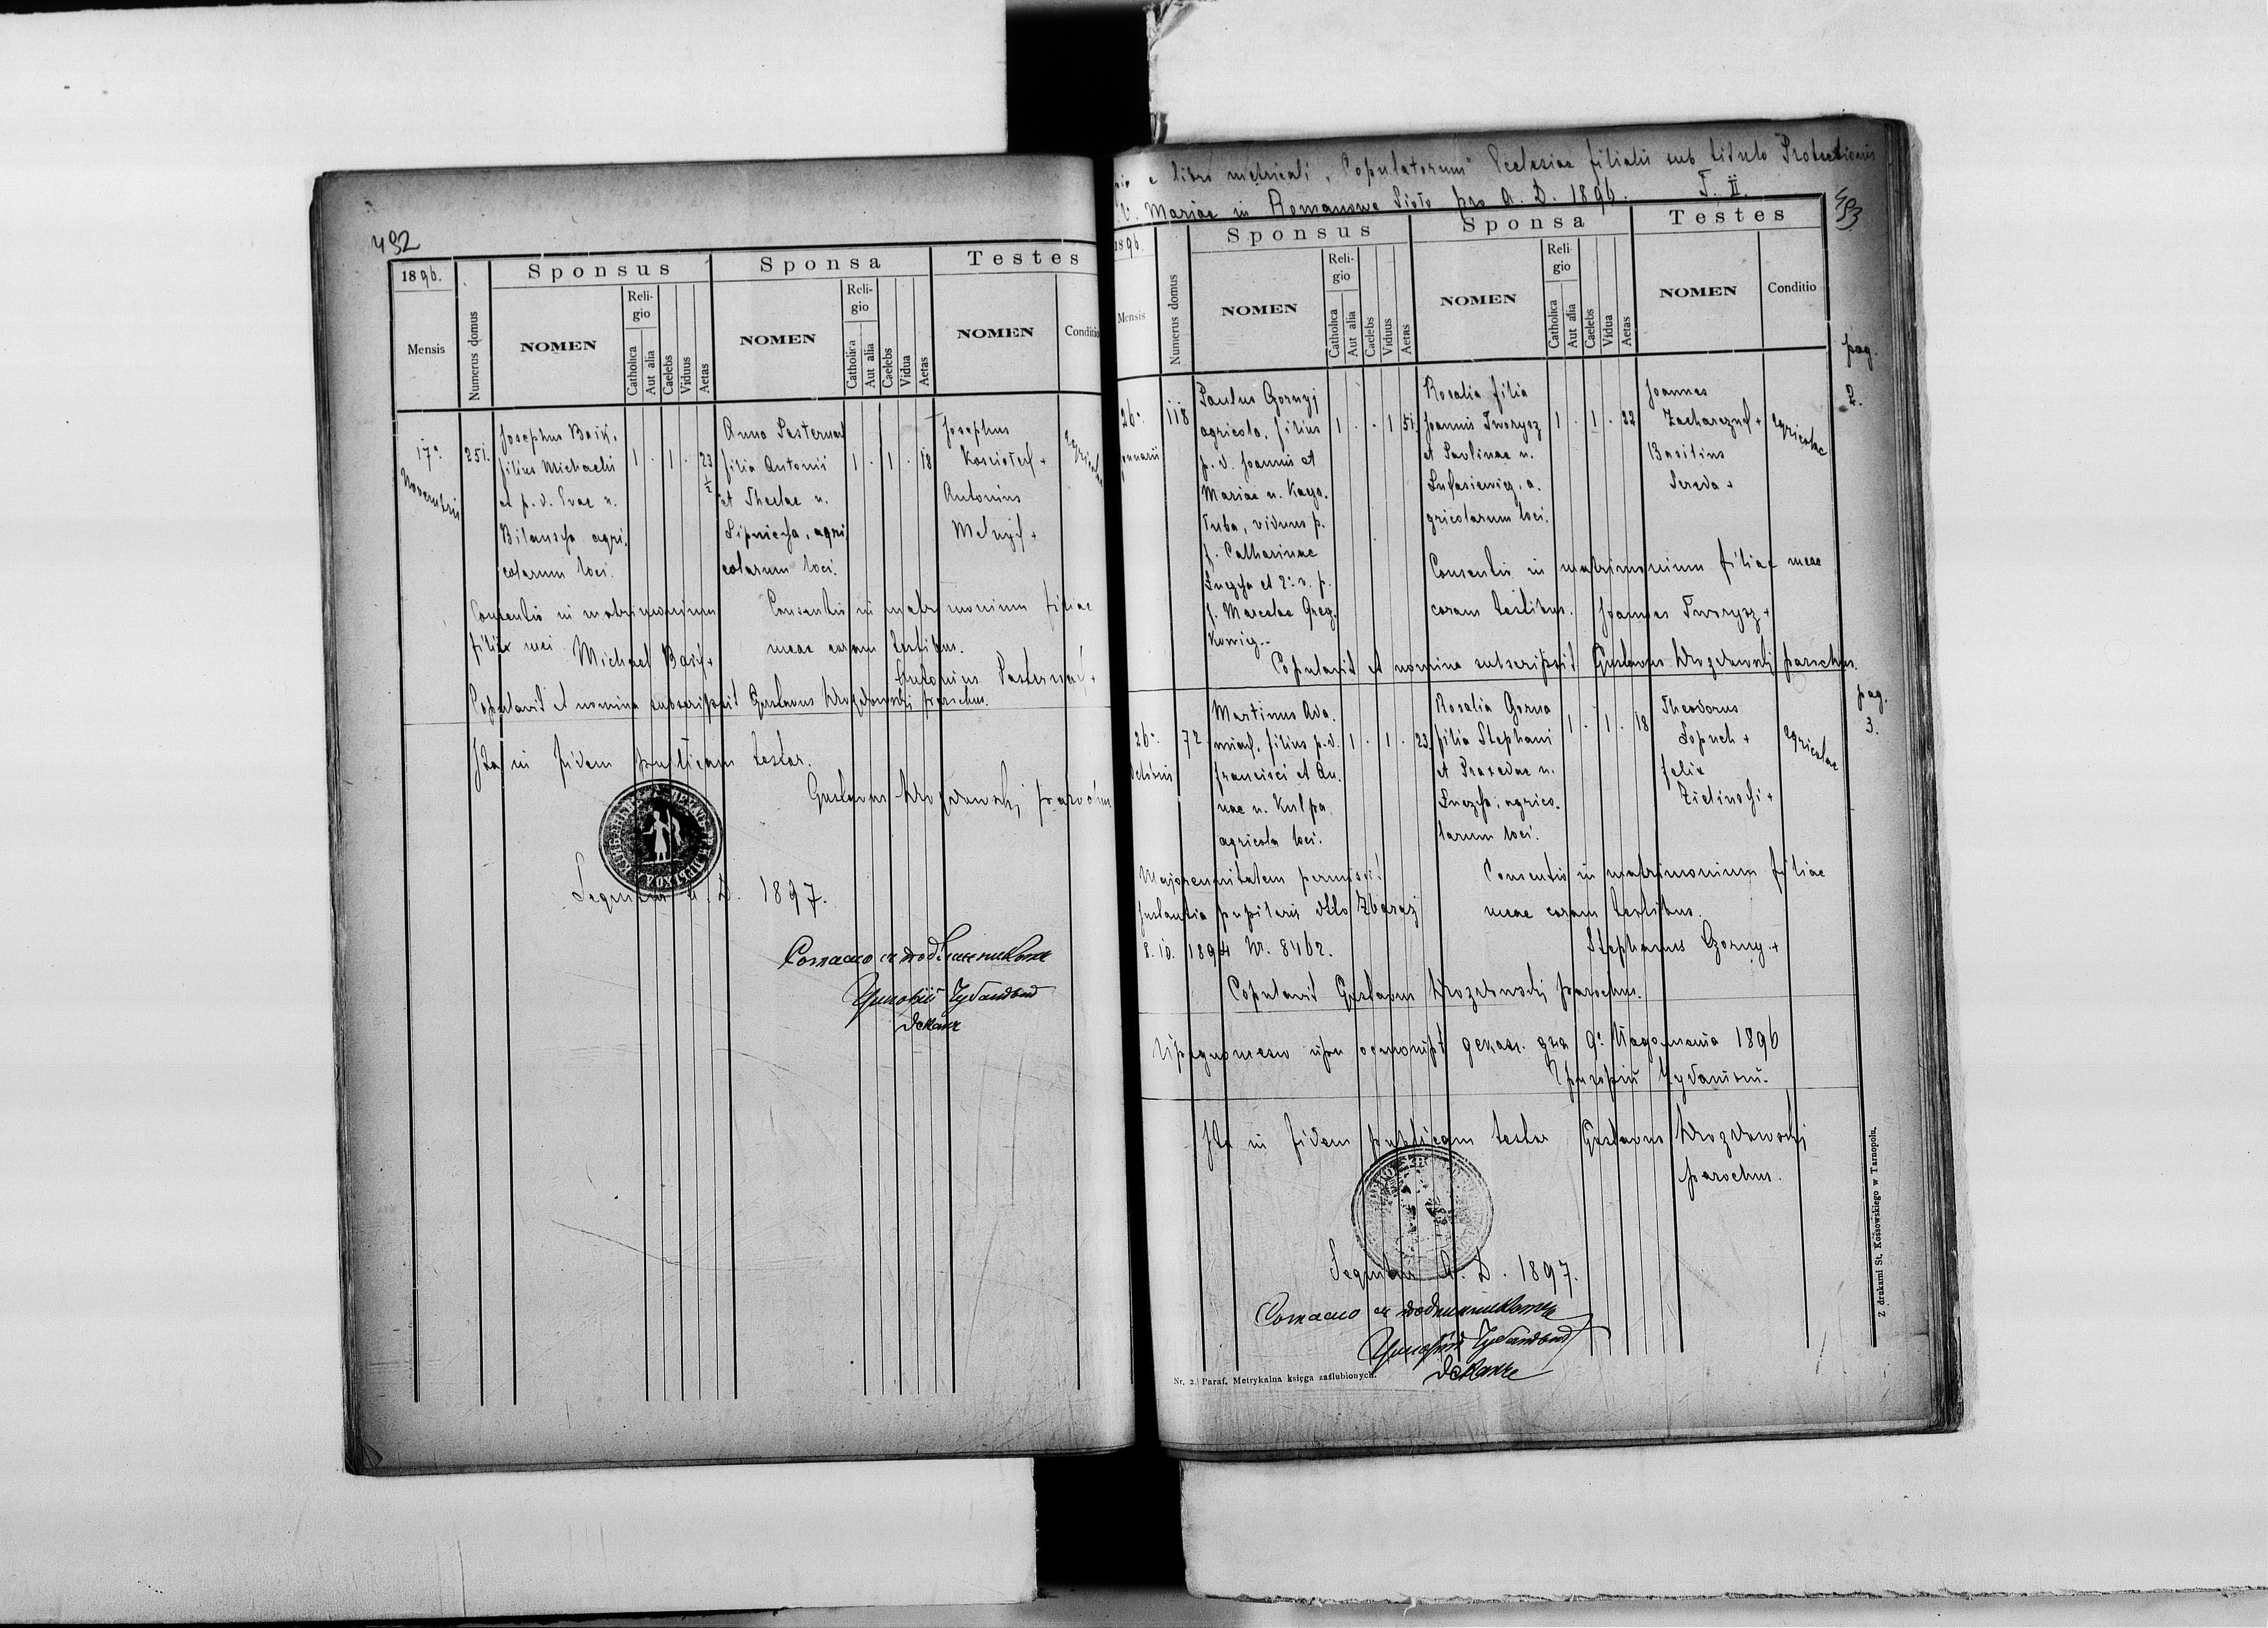 492
1896.
Mensis
Numerus domus
Sponsus
NOMEN
Religio
Catholica
Aut alia
Caelebs
Viduus
Aetas
Sponsa
NOMEN
Religio
Catholica
Aut alia
Caelebs
Vidua
Aetas
Testes
NOMEN
Conditio
17a
Novembris
251.
Josephus Baik,
filius Michaelis
et p. d. Evae n.
agri
colarum loci.
1 . 1 . 23 1/2
Anna Pasternak
filia Antonii
et Theclae n.
Lipnicka, agri
colarum loci.
1 . 1 . 18
Josephus
Kosciołek +
Antonius
Melnyk +
agricolae
Consentio in matrimonium
filii mei
Michael Baik +
Consentio in matrimonium filiae
meae coram testibus.
Antonius Pasternak +
Copulavit et nomina subscripsit Gustavus Drozdowskj parochus.
Ita in fidem publicam testor.
Gustavus Drozdowskj parochus
Sequitur A. D. 1897.
Согласно съ подлинникомъ
деканъ
e libro metricali "Copulatorum" Ecclesiae filialis sub titulo Protectionis
V. Mariae in Romanowe Sioło pro A. D. 1896. T. II.
493
1896.
Mensis
Numerus domus
Sponsus
NOMEN
Religio
Catholica
Aut alia
Caelebs
Viduus
Aetas
Sponsa
NOMEN
Religio
Catholica
Aut alia
Caelebs
Vidua
Aetas
Testes
NOMEN
Conditio
pag.
2.
26a
Januarii
118
Paulus Gornyj
agricola, filius
p. d. Joannis et
Mariae n.
viduus p.
f. Catharinae
et 2o v. p.
f. Marcelae
1 . . 1 51.
Rosalia filia
Joannis Tworysz
et Paulinae n.
Lukasiewicz, a-
gricolarum loci.
1 . 1 . 22
Joannes
Zacharczuk +
Basilius
Sereda +
agricolae
Consentio in matrimonium filiae meae
coram testibus. Joannes Tworysz +
Copulavit et nomina subscripsit Gustavus Drozdowskj parochus.
pag.
3.
26a
Octobris
72
Martinus Ada-
miak, filius p. d.
Francisci et An-
nae n. Kulpa
agricola loci.
1 . 1 . 23.
Rosalia Gorna
filia Stephani
et Praxedae n.
agrico-
larum loci.
1 . 1 . 18
Theodorus
Łopuch +
Felix
Zielinski +
agricolae
permisit
Instantia pupilaris dtto Zbaraz
8.10. 1894 Nr. 8462.
Consentio in matrimonium filiae
meae coram testibus.
Stephanus Gorny +
Copulavit Gustavus Drozdowskj parochus.
1896
Ita in fidem publicam testor Gustavus Drozdowskj
parochus.
Sequitur A. D. 1897.
Согласно съ подлинникомъ
деканъ
Nr. 2. Paraf. Metrykalna księga zaślubionych.
Z drukarni St. Kossowskiego w Tarnopolu.